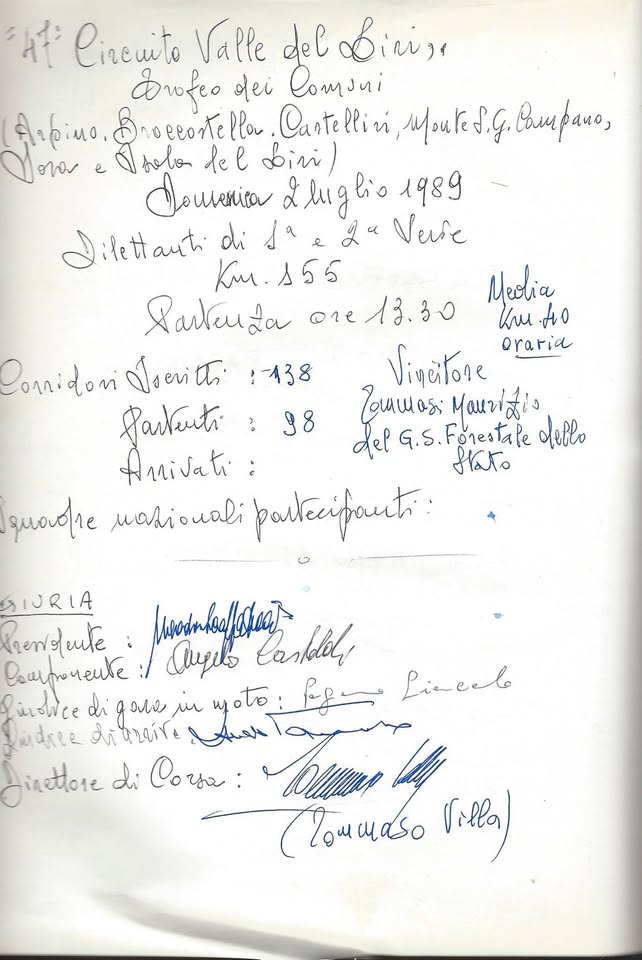 "47° Circuito Valle del Liri,,
Trofeo dei Comuni
(Arpino, Broccostella, Castelliri, Monte S.G. Campano,
Sora e Isola del Liri)
Domenica 2 luglio 1989
Dilettanti di 1ª e 2ª Serie
Km. 155
Partenza ore 13.30
Media
Km. 40
oraria
Corridori Iscritti : 138
Partenti : 98
Arrivati :
Vincitore
Tommasi Maurizio
del G.S. Forestale dello
Stato
Squadre nazionali partecipanti :
GIURIA
Presidente :
Componente : Angelo
Giudice di gara in moto :
Giudice di arrivo :
Direttore di Corsa :
(Tommaso Villa)